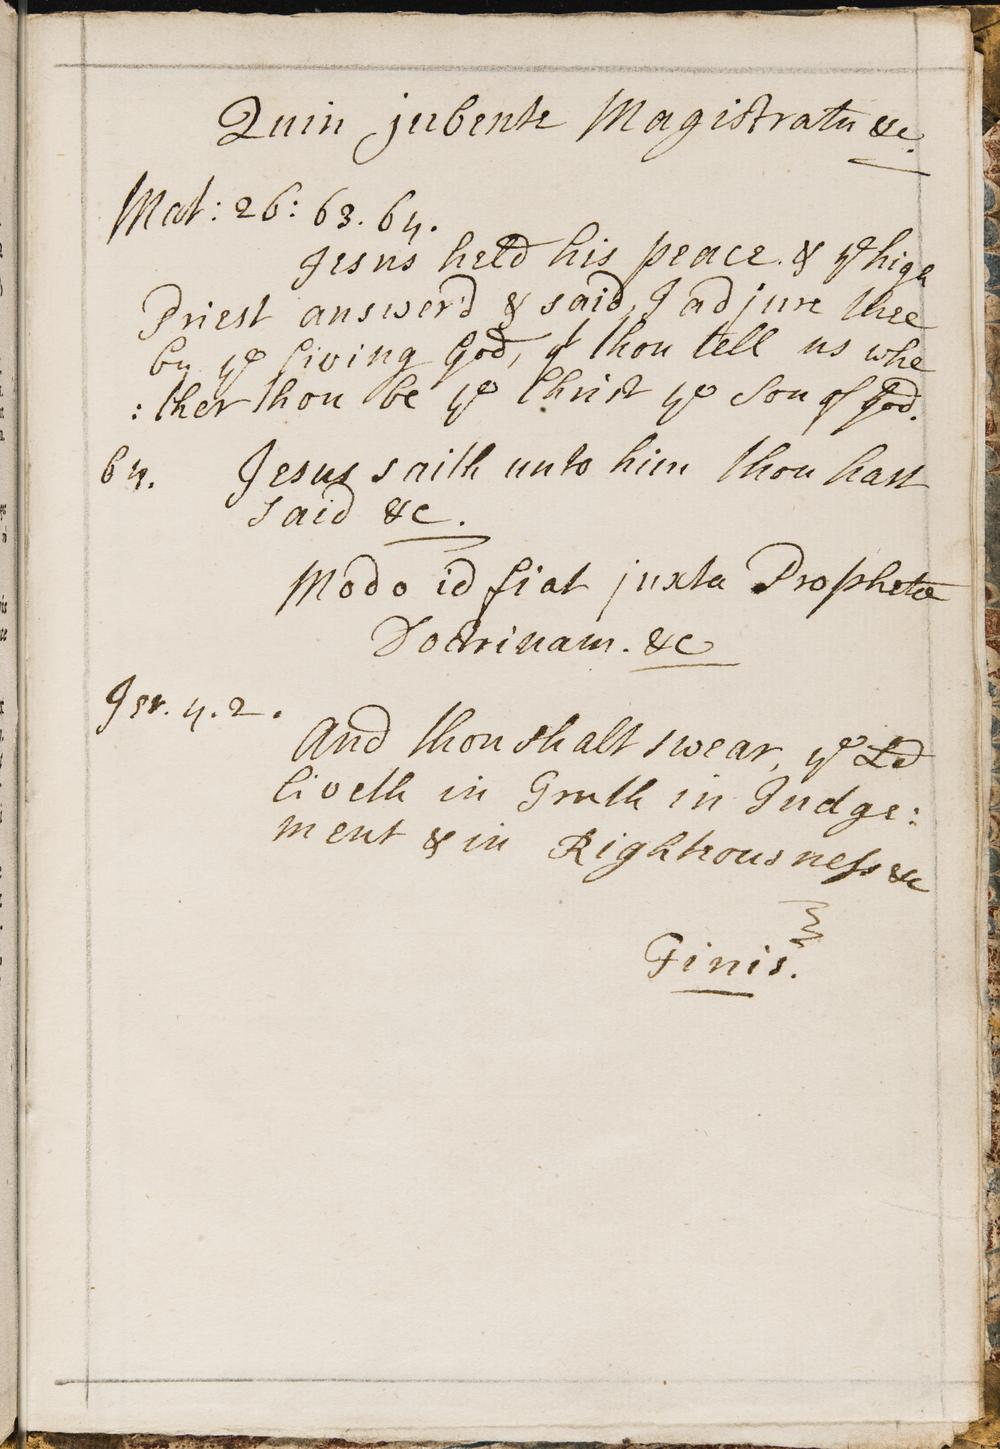 Quin jubente Magistratu &c.
Mat: 26: 63. 64.
Jesus held his peace. & ye high
Priest answer'd & said, I adjure thee
by ye living God, yt thou tell us whe
: ther thou be ye Christ ye Son of God.
64. Jesus saith unto him thou hast
said &c.
Modo id fiat juxta Prophetæ
Doctrinam. &c
Jer. 4. 2.
And thou shalt swear, ye Ld
liveth in Truth in Judge:
ment & in Righteousness &c
Finis.